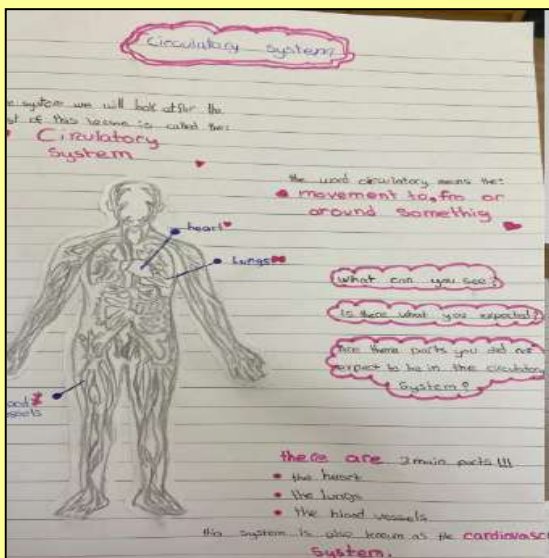 circulatory system
system we will look at for the
of this lesson is called the:
Circulatory
System
the word circulatory means the:
movement to, fro or
around somethig
heart
Lungs
What can you see?
Is there what you expected?
Are there parts you did not
expect to be in the circulatory
System?
vessels
there are 3 main parts !!!
the heart
the lungs
the blood vessels
this system is also known as the
System.